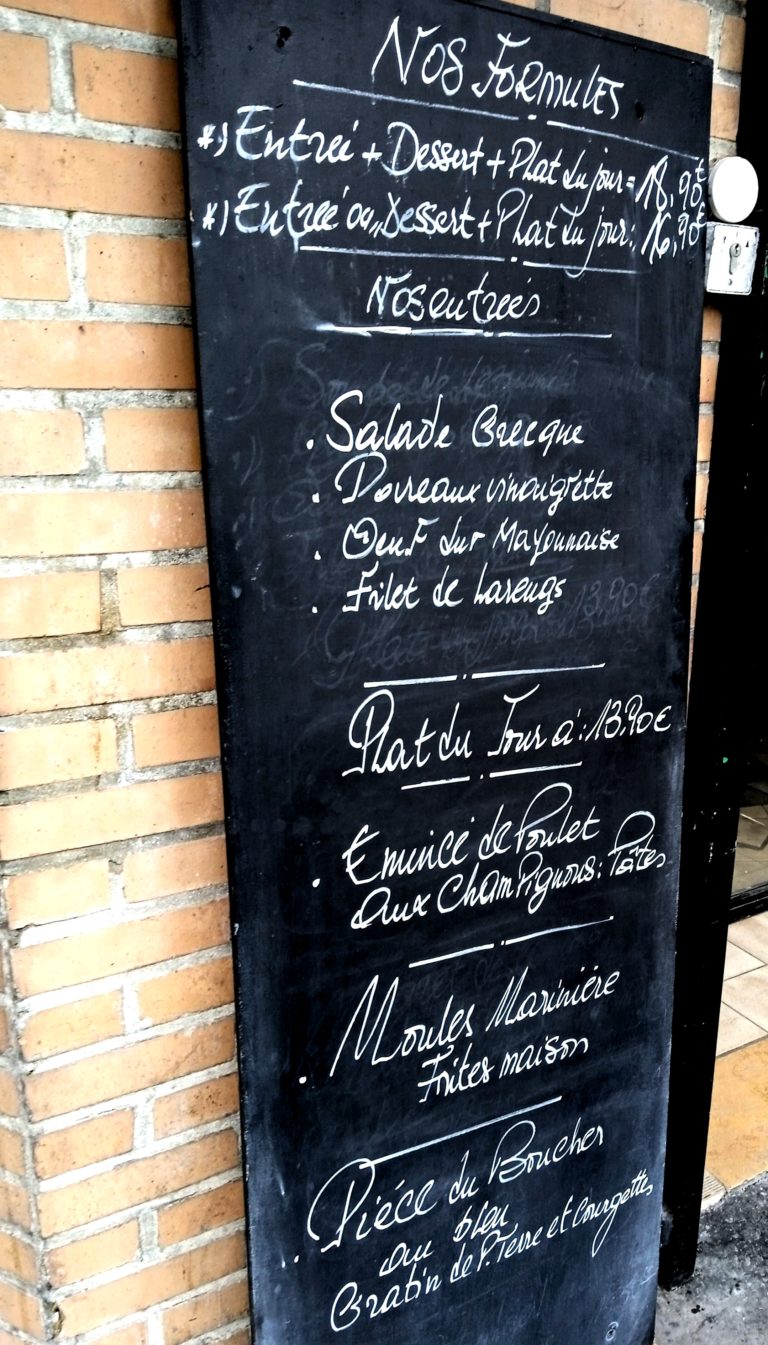 Nos Formules
*) Entreé + Dessert + Plat du jour = 18,90€
*) Entreé ou Dessert + Plat du jour: 16,90€
Nos entreés
. Salade Grecque
. Poireaux vinaigrette
. Oeuf dur Mayonnaise
. Filet de harengs
Plat du Jour à: 13,90€
. Emincé de Poulet
aux Champignons: Pâtes
. Moules Marinière
Frites maison
.. Piéce du Boucher
au bleu
Gratin de P. Terre et Courgettes